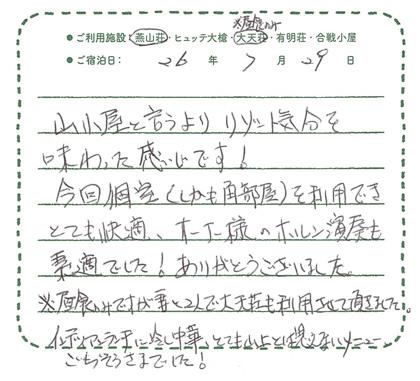 ※昼食のみ
●ご利用施設:燕山荘・ヒュッテ大槍・大天荘・有明荘・合戦小屋
●ご宿泊日: 26 年 7 月 29 日
山小屋と言うより リゾート気分を
味わった感じです!
今回個室(しかも角部屋)を利用でき
とても快適、オーナー様のホルン演奏も
素適でした!ありがとうございました。
※昼食のみですが妻と2人で大天荘も利用させて頂きました。
インディアンランチに冷し中華、とても山上とは思えないメニュー
ごちそうさまでした!